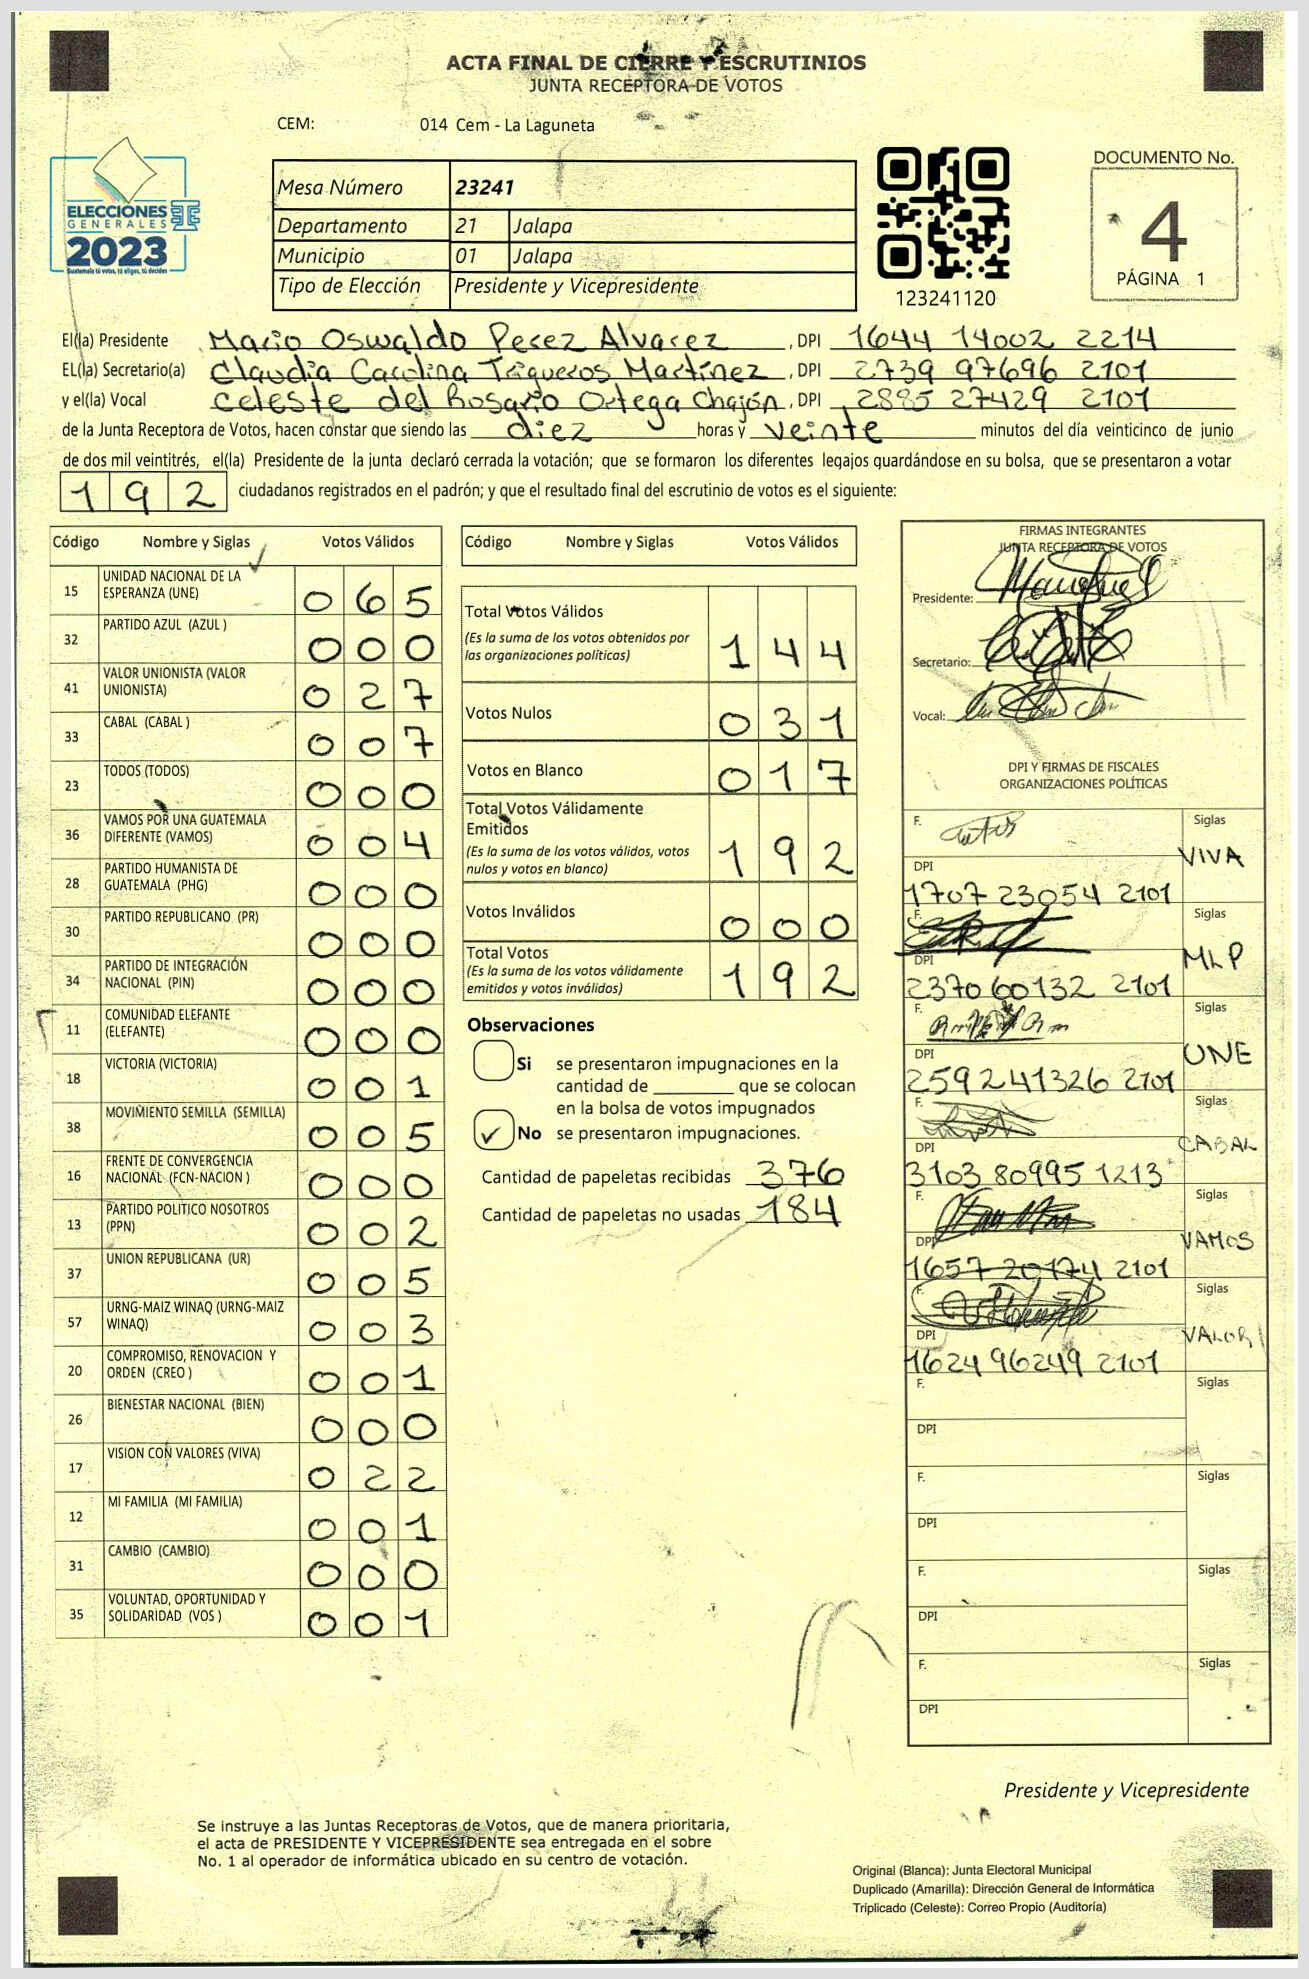 ACTA FINAL DE CIERRE Y ESCRUTINIOS
JUNTA RECEPTORA DE VOTOS
CEM: 014 Cem - La Laguneta
ELECCIONES
GENERALES
2023
Guatemala tú votas, tú eliges, tú decides
Mesa Número 23241
Departamento 21 Jalapa
Municipio 01 Jalapa
Tipo de Elección Presidente y Vicepresidente
123241120
DOCUMENTO No.
4
PÁGINA 1
El(la) Presidente Mario Oswaldo Perez Alvarez, DPI 1644 14002 2214
EL(la) Secretario(a) Claudia Carolina Trigueros Martínez, DPI 2739 97696 2101
y el(la) Vocal Celeste del Rosario Ortega Chajón, DPI 2885 27429 2101
de la Junta Receptora de Votos, hacen constar que siendo las diez horas y veinte minutos del día veinticinco de junio
de dos mil veintitrés, el(la) Presidente de la junta declaró cerrada la votación; que se formaron los diferentes legajos guardándose en su bolsa, que se presentaron a votar
192 ciudadanos registrados en el padrón; y que el resultado final del escrutinio de votos es el siguiente:
Código Nombre y Siglas Votos Válidos
15 UNIDAD NACIONAL DE LA ESPERANZA (UNE) 065
32 PARTIDO AZUL (AZUL ) 000
41 VALOR UNIONISTA (VALOR UNIONISTA) 027
33 CABAL (CABAL ) 007
23 TODOS (TODOS) 000
36 VAMOS POR UNA GUATEMALA DIFERENTE (VAMOS) 004
28 PARTIDO HUMANISTA DE GUATEMALA (PHG) 000
30 PARTIDO REPUBLICANO (PR) 000
34 PARTIDO DE INTEGRACIÓN NACIONAL (PIN) 000
11 COMUNIDAD ELEFANTE (ELEFANTE) 000
18 VICTORIA (VICTORIA) 001
38 MOVIMIENTO SEMILLA (SEMILLA) 005
16 FRENTE DE CONVERGENCIA NACIONAL (FCN-NACION ) 000
13 PARTIDO POLITICO NOSOTROS (PPN) 002
37 UNION REPUBLICANA (UR) 005
57 URNG-MAIZ WINAQ (URNG-MAIZ WINAQ) 003
20 COMPROMISO, RENOVACION Y ORDEN (CREO ) 001
26 BIENESTAR NACIONAL (BIEN) 000
17 VISION CON VALORES (VIVA) 022
12 MI FAMILIA (MI FAMILIA) 001
31 CAMBIO (CAMBIO) 000
35 VOLUNTAD, OPORTUNIDAD Y SOLIDARIDAD (VOS ) 001
Código Nombre y Siglas Votos Válidos
Total Votos Válidos 144
(Es la suma de los votos obtenidos por
las organizaciones políticas)
Votos Nulos 031
Votos en Blanco 017
Total Votos Válidamente
Emitidos 192
(Es la suma de los votos válidos, votos
nulos y votos en blanco)
Votos Inválidos 000
Total Votos 192
(Es la suma de los votos válidamente
emitidos y votos inválidos)
Observaciones
Si se presentaron impugnaciones en la
cantidad de ________ que se colocan
en la bolsa de votos impugnados
✓ No se presentaron impugnaciones.
Cantidad de papeletas recibidas 376
Cantidad de papeletas no usadas 184
FIRMAS INTEGRANTES
JUNTA RECEPTORA DE VOTOS
Presidente:
Secretario:
Vocal:
DPI Y FIRMAS DE FISCALES
ORGANIZACIONES POLÍTICAS
F. Siglas
VIVA
DPI
1707 23054 2101
F. Siglas
MLP
DPI
2370 60132 2101
F. Siglas
UNE
DPI
2592 41326 2101
F. Siglas
CABAL
DPI
3103 80995 1213
F. Siglas
VAMOS
DPI
1657 20174 2101
F. Siglas
VALOR
DPI
1624 96249 2101
F. Siglas
DPI
F. Siglas
DPI
F. Siglas
DPI
F. Siglas
DPI
Presidente y Vicepresidente
Se instruye a las Juntas Receptoras de Votos, que de manera prioritaria,
el acta de PRESIDENTE Y VICEPRESIDENTE sea entregada en el sobre
No. 1 al operador de informática ubicado en su centro de votación.
Original (Blanca): Junta Electoral Municipal
Duplicado (Amarilla): Dirección General de Informática
Triplicado (Celeste): Correo Propio (Auditoría)